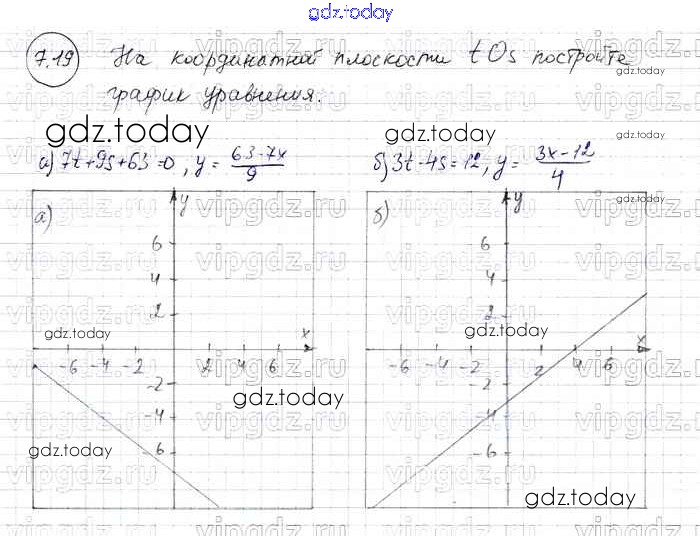 gdz.today
7.19 На координатной плоскости tOs постройте
график уравнения.
gdz.today
gdz.today
gdz.today
gdz.today
а) 7t+9s+63=0, y = (63-7x)/9
б) 3t-4s=12, y = (3x-12)/4
а) y
6
4
2
x
-6 -4 -2 2 4 6
-2
-4
-6
gdz.today
gdz.today
gdz.today
б) y
6
4
2
x
-6 -4 -2 2 4 6
-2
-4
-6
gdz.today
gdz.today
vipgdz.ru